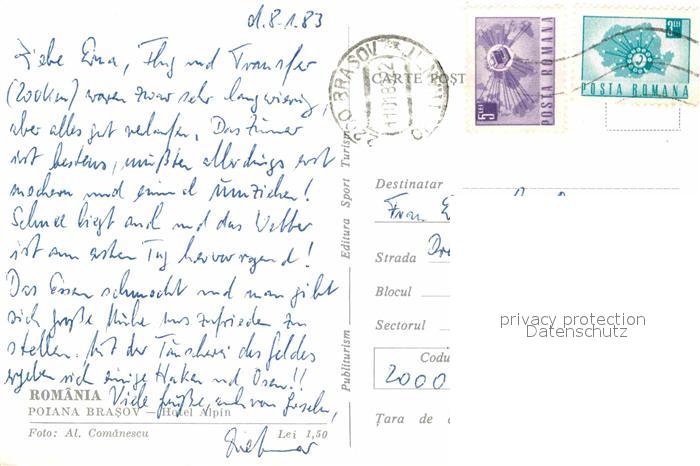 d. 8.1.83
Liebe Erna, Flug und Transfer
(200km) waren zwar sehr langwierig,
aber alles gut verlaufen. Das Zimmer
ist bestens, mußten allerdings erst
meckern und einmal umziehen!
Schnee liegt auch und das Wetter
ist am ersten Tag hervorragend!
Das Essen schmeckt und man gibt
sich große Mühe uns zufrieden zu
stellen. Mit der Tauscherei des Geldes
ergeben sich einige Haken und Ösen!!
Viele Grüße, auch von
Dietmar
ROMÂNIA
POIANA BRAȘOV — Hotel Alpin
Foto: Al. Comănescu Lei 1,50
Editura Sport Turism
Publiturism
CARTE POST
BRASOV
5 LEI
POSTA ROMANA
3 LEI
POSTA ROMANA
Destinatar
Frau E
Strada Dre
Blocul
Sectorul
Codu
2000
Țara de
privacy protection
Datenschutz